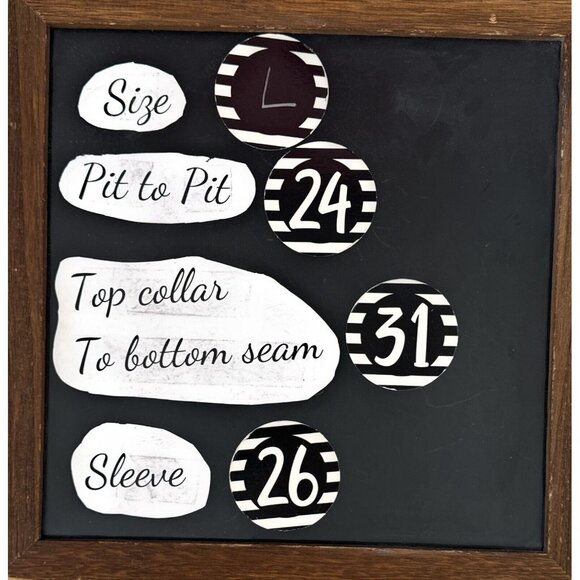 Size L
Pit to Pit 24
Top collar
To bottom seam 31
Sleeve 26